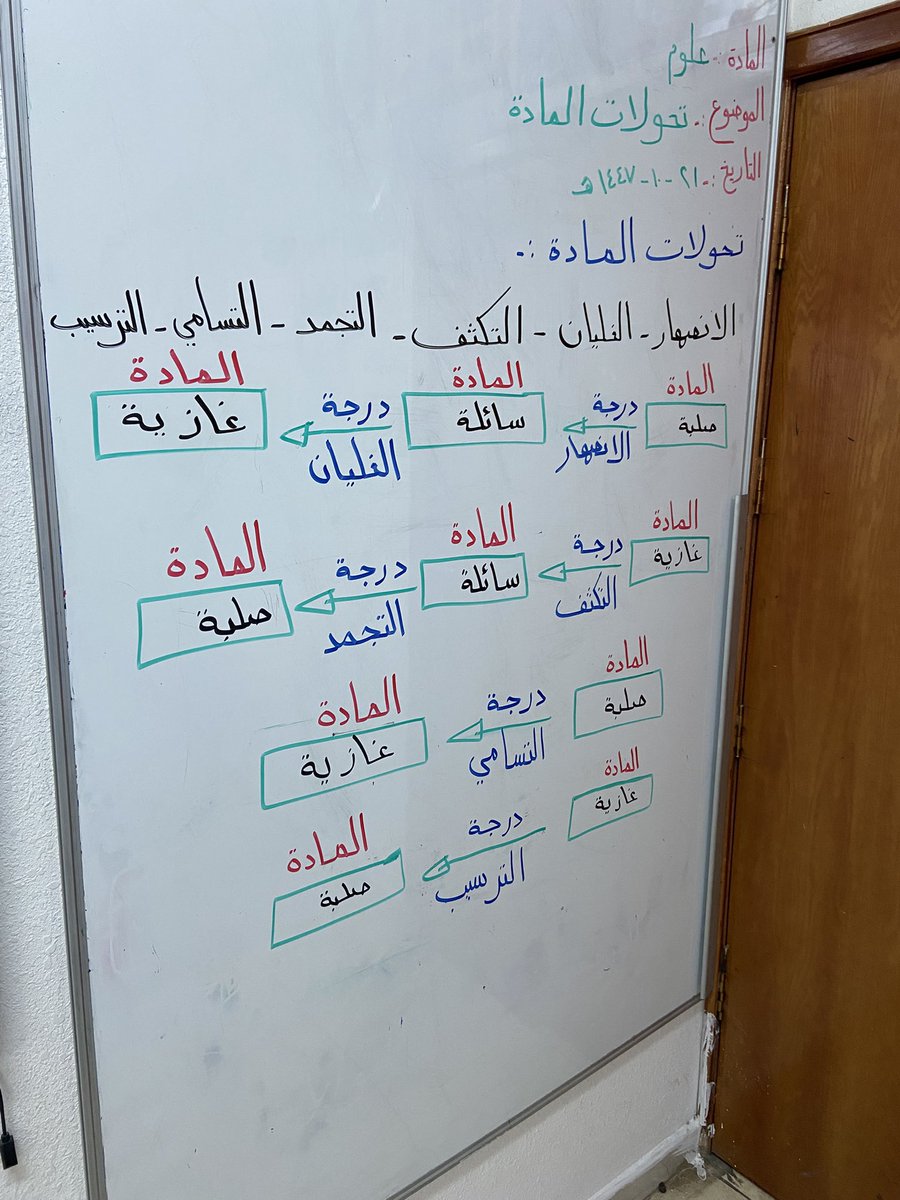 المادة :- علوم
الموضوع :- تحولات المادة
التاريخ :- ٢١ - ١٠ - ١٤٤٧ هـ
تحولات المادة :-
الانصهار - الغليان - التكثف - التجمد - التسامي - الترسيب
المادة صلبة درجة الانصهار المادة سائلة درجة الغليان المادة غازية
المادة غازية درجة التكثف المادة سائلة درجة التجمد المادة صلبة
المادة صلبة درجة التسامي المادة غازية
المادة غازية درجة الترسيب المادة صلبة